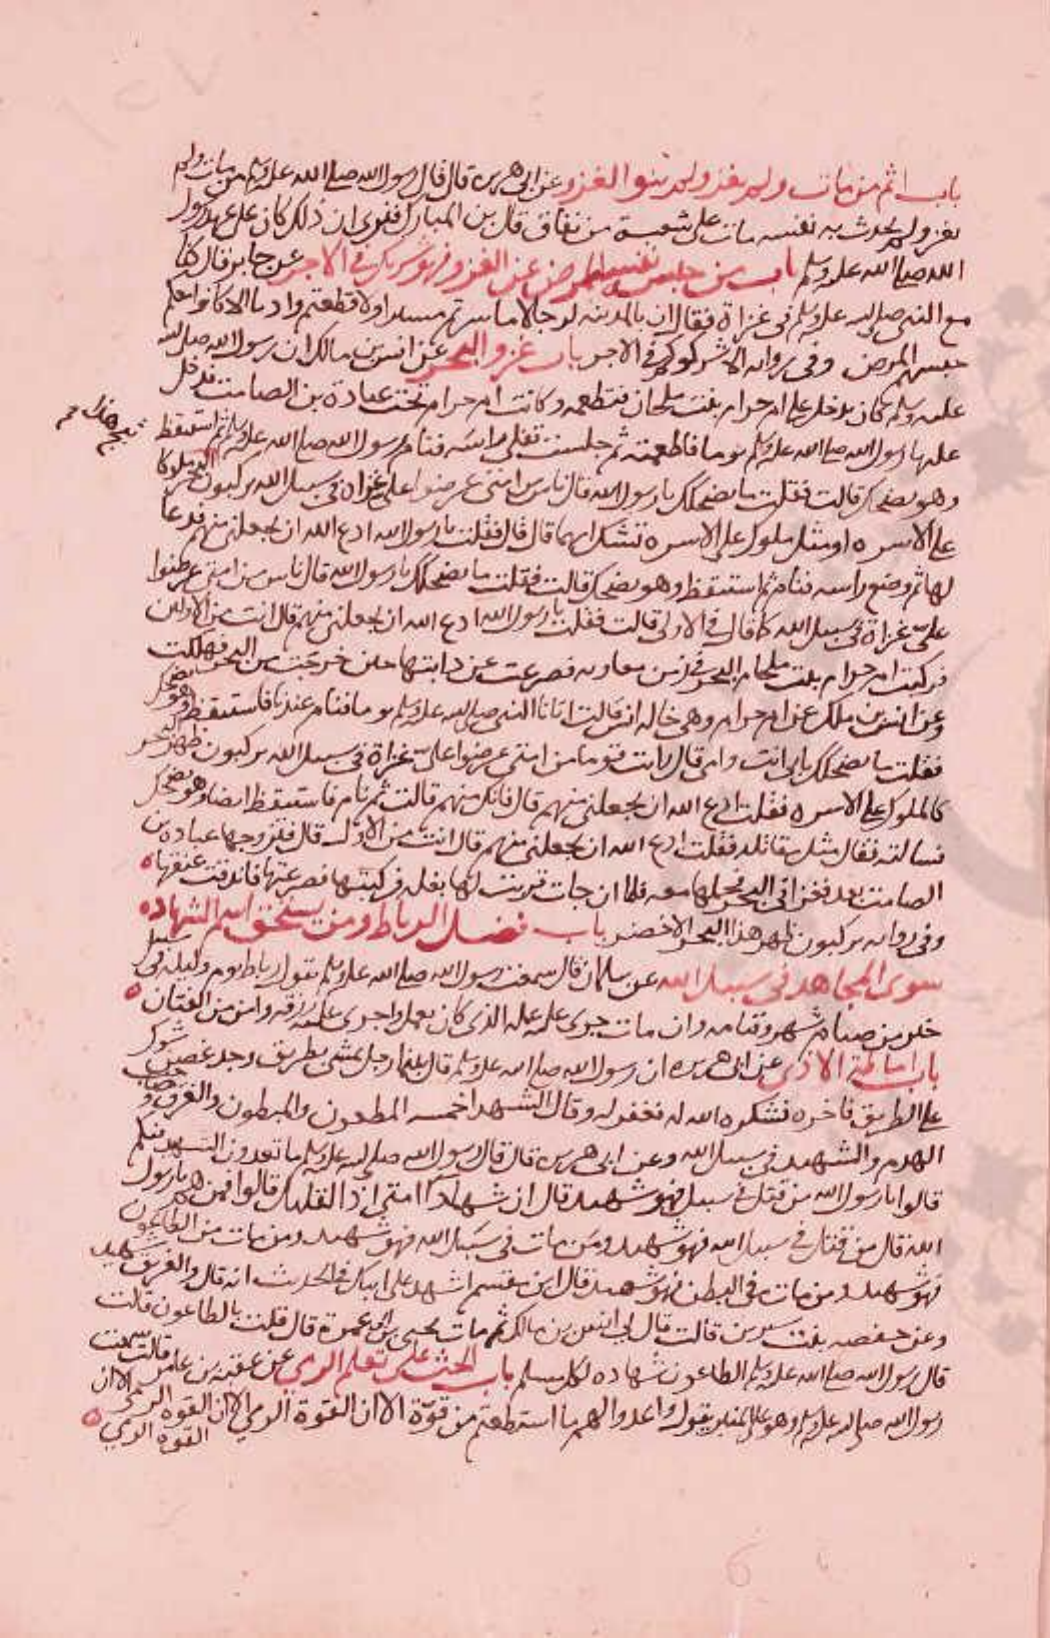 باب اثم من مات ولم يغز ولم ينو الغزو عن ابى هريرة قال قال رسول الله صلى الله عليه وسلم من مات ولم
يغزو ولم يحدث به نفسه مات على شعبة من نفاق قال بن المبارك فنرى ان ذلك كان على عهد رسول
الله صلى الله عليه وسلم باب من حبس نفسه المرض عن الغزو فهو شريك في الاجر عن جابر قال كنا
مع النبي صلى الله عليه وسلم في غزاة فقال ان بالمدينه لرجالا ما سرتم مسيرا ولا قطعتم واديا الا كانوا معكم
حبسهم المرض وفي رواية الا شركوكم في الاجر باب غزو البحر عن انس بن مالك ان رسول الله صلى الله
عليه وسلم كان يدخل على ام حرام بنت ملحان فتطعمه وكانت ام حرام تحت عبادة بن الصامت فدخل
عليها رسول الله صلى الله عليه وسلم يوما فاطعمته ثم جلست تفلى راسه فنام رسول الله صلى الله عليه وسلم ثم استيقظ
وهو يضحك قالت فقلت ما يضحكك يا رسول الله قال ناس من امتى عرضوا على غزاة في سبيل الله يركبون البحر ملوكا
على الاسره او مثل ملوك على الاسره تشك ايهما قال قال فقلت يا رسول الله ادع الله ان يجعلني منهم فدعا
لها ثم وضع راسه فنام ثم استيقظ وهو يضحك قالت فقلت ما يضحكك يا رسول الله قال ناس من امتى عرضوا
علي غزاة في سبيل الله كما قال في الاولى قالت فقلت يا رسول الله ادع الله ان يجعلني منهم قال انت من الاولين
فركبت ام حرام بنت ملحان البحر في زمن معاويه فصرعت عن دابتها حين خرجت من البحر فهلكت
وعن انس بن ملك عن ام حرام وهي خاله انس قالت اتانا النبي صلى الله عليه وسلم يوما فنام عندنا فاستيقظ وهو يضحك
فقلت ما يضحكك بابى انت وامى قال رايت قوما من امتى عرضوا على غزاة في سبيل الله يركبون ظهر البحر
كالملوك على الاسره فقلت ادع الله ان يجعلني منهم قال فانك منهم قالت ثم نام فاستيقظ ايضا وهو يضحك
فسالته فقال مثل مقالته فقلت ادع الله ان يجعلني منهم قال انت من الاولين قال فتزوجها عبادة بن
الصامت بعد فغزا في البحر فحملها معه فلما ان جات قربت لها بغله فركبتها فصرعتها فاندقت عنقها
وفي رواية يركبون ظهر هذا البحر الاخضر باب فضل الرباط ومن يستحق اسم الشهاده
سوى المجاهد في سبيل الله عن سلمان قال سمعت رسول الله صلى الله عليه وسلم يقول رباط يوم وليله في سبيل
خير من صيام شهر وقيامه وان مات جرى عليه عمله الذي كان يعمل واجرى عليه رزقه وامن من الفتان
باب اماطة الاذى عن ابى هريره ان رسول الله صلى الله عليه وسلم قال بينما رجل يمشى بطريق وجد غصن شوك
على الطريق فاخره فشكره الله له فغفر له وقال الشهدا خمسه المطعون والمبطون والغرق وصاحب
الهدم والشهيد في سبيل الله وعن ابى هريره قال قال رسول الله صلى الله عليه وسلم ما تعدون الشهيد فيكم
قالوا يا رسول الله من قتل في سبيل الله فهو شهيد قال ان شهدا امتى اذا لقليل قالوا فمن هم يا رسول
الله قال من قتل في سبيل الله فهو شهيد ومن مات في سبيل الله فهو شهيد ومن مات من الطاعون
فهو شهيد ومن مات في البطن فهو شهيد قال ابن مقسم اشهد على ابيك في الحديث انه قال والغريق شهيد
وعن حفصه بنت سيرين قالت قال لي انس بن مالك ثم مات يحيى بن ابى عمرة قال قلت بالطاعون قالت
قال رسول الله صلى الله عليه وسلم الطاعون شهاده لكل مسلم باب الحث على تعلم الرمي عن عقبة بن عامر قال سمعت
رسول الله صلى الله عليه وسلم وهو على المنبر يقول واعدوا لهم ما استطعتم من قوة الا ان القوة الرمي الا ان القوه الرمى الا ان
القوه الرمي